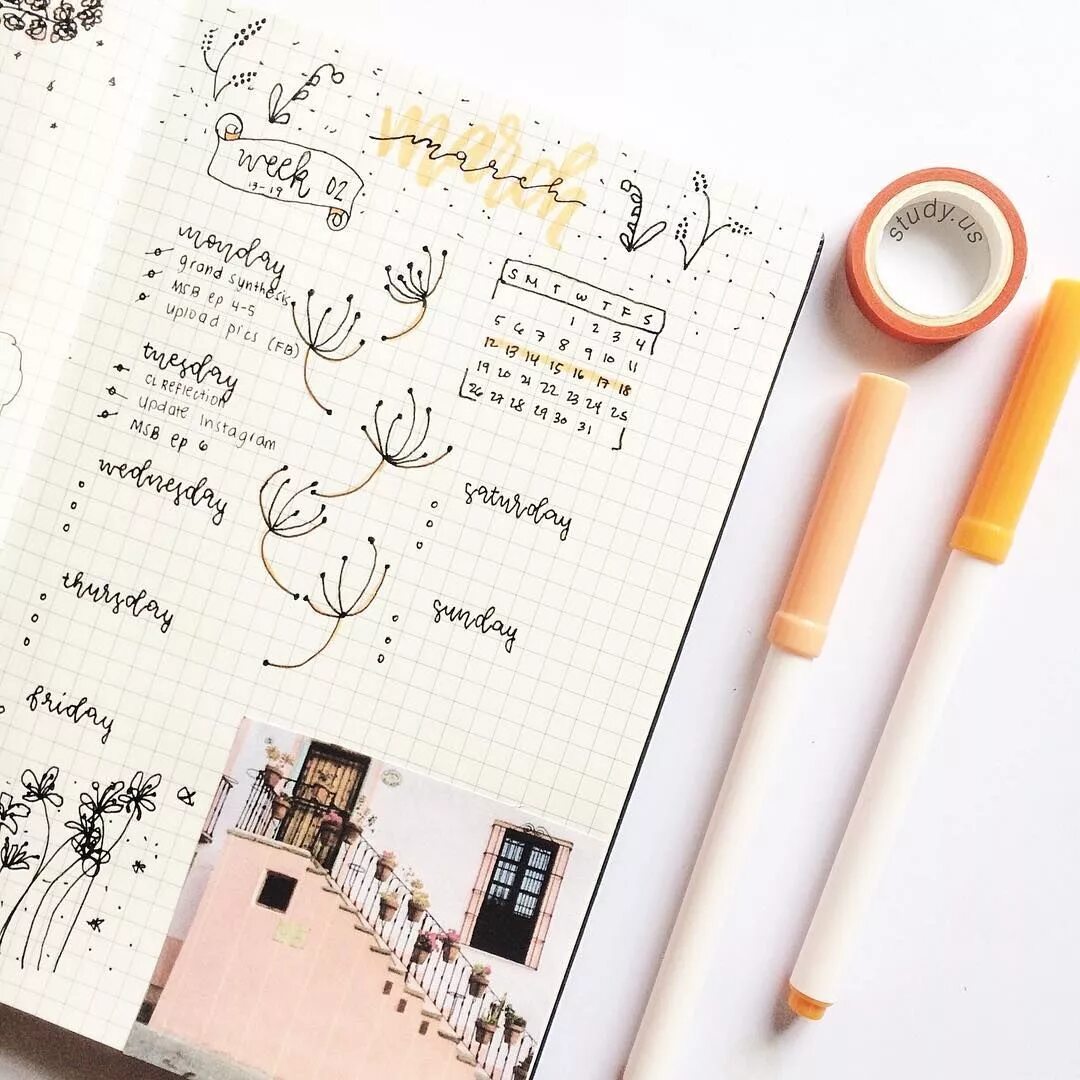 march
march
week 02
13-19
monday
grand synthesis
MSB ep 4-5
upload pics (FB)
tuesday
CL Reflection
update Instagram
MSB ep 6
wednesday
thursday
friday
S M T W T F S
1 2 3 4
5 6 7 8 9 10 11
12 13 14 15 16 17 18
19 20 21 22 23 24 25
26 27 28 29 30 31
saturday
sunday
study.us